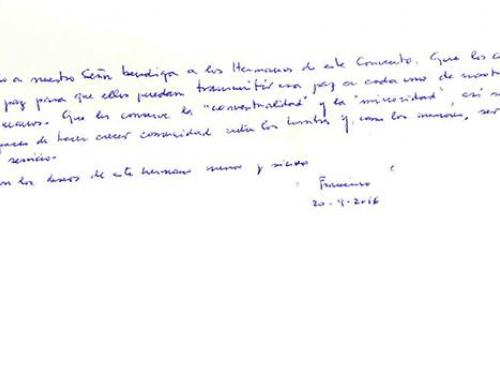 o a nuestro Señor bendiga a los Hermanos de este Convento. Que los c
paz para que ellos puedan transmitir esa paz a cada uno de nosotr
Que les conserve la "conventualidad" y la "minoridad", así s
de hacer crecer comunidad entre los hombres y, como los menores, ser
servicio.
on los deseos de este hermano menor y siervo
Francisco
20-9-2016